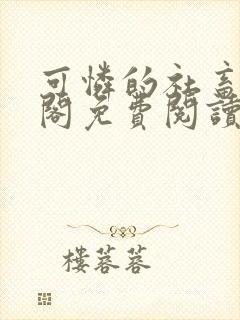 可憐的社畜
閣免費閱讀
樓蓉蓉